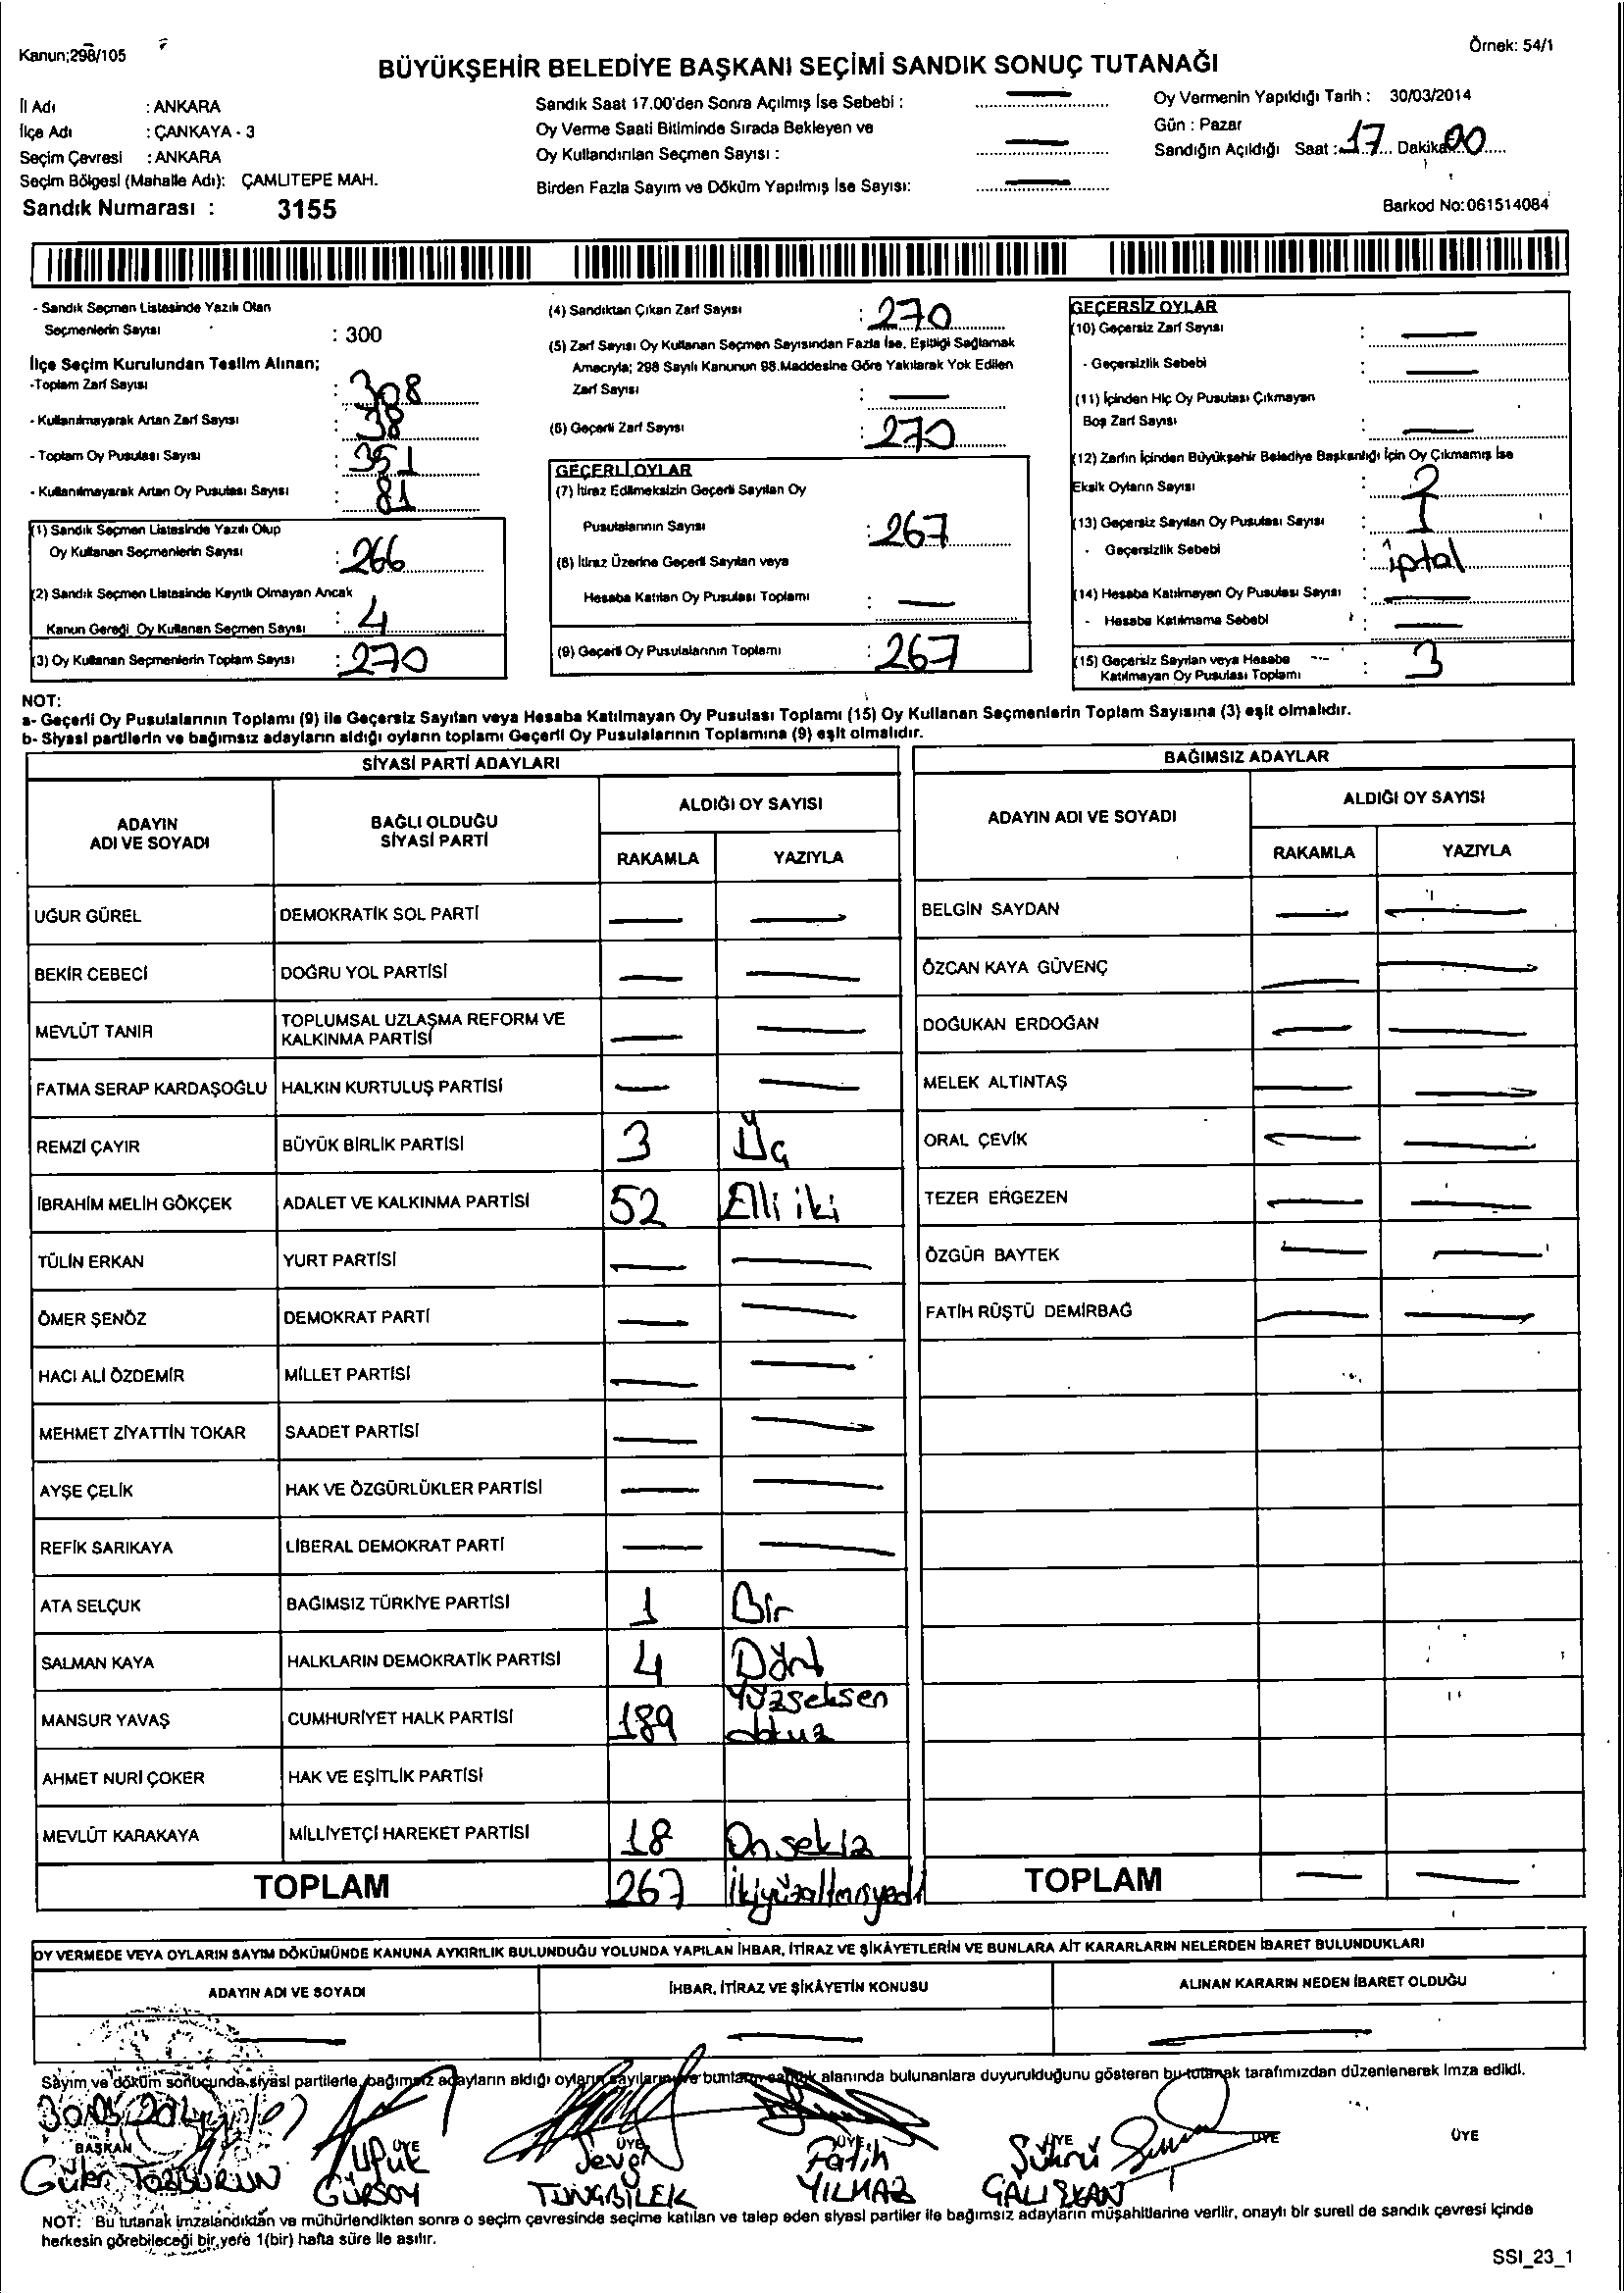 Kanun;298/105
Örnek: 54/1
BÜYÜKŞEHİR BELEDİYE BAŞKANI SEÇİMİ SANDIK SONUÇ TUTANAĞI
İl Adı : ANKARA
İlçe Adı : ÇANKAYA - 3
Seçim Çevresi : ANKARA
Seçim Bölgesi (Mahalle Adı): ÇAMLITEPE MAH.
Sandık Numarası : 3155
Sandık Saat 17.00'den Sonra Açılmış İse Sebebi : —
Oy Verme Saati Bitiminde Sırada Bekleyen ve
Oy Kullandırılan Seçmen Sayısı : —
Birden Fazla Sayım ve Döküm Yapılmış İse Sayısı: —
Oy Vermenin Yapıldığı Tarih : 30/03/2014
Gün : Pazar
Sandığın Açıldığı Saat : 17 Dakika 00
Barkod No:061514084
- Sandık Seçmen Listesinde Yazılı Olan
Seçmenlerin Sayısı : 300
İlçe Seçim Kurulundan Teslim Alınan;
-Toplam Zarf Sayısı : 308
- Kullanılmayarak Artan Zarf Sayısı : 38
- Toplam Oy Pusulası Sayısı : 351
- Kullanılmayarak Artan Oy Pusulası Sayısı : 81
(1) Sandık Seçmen Listesinde Yazılı Olup
Oy Kullanan Seçmenlerin Sayısı : 266
(2) Sandık Seçmen Listesinde Kayıtlı Olmayan Ancak
Kanun Gereği Oy Kullanan Seçmen Sayısı : 4
(3) Oy Kullanan Seçmenlerin Toplam Sayısı : 270
(4) Sandıktan Çıkan Zarf Sayısı : 270
(5) Zarf Sayısı Oy Kullanan Seçmen Sayısından Fazla İse, Eşitliği Sağlamak
Amacıyla; 298 Sayılı Kanunun 98.Maddesine Göre Yakılarak Yok Edilen
Zarf Sayısı : —
(6) Geçerli Zarf Sayısı : 270
GEÇERLİ OYLAR
(7) İtiraz Edilmeksizin Geçerli Sayılan Oy
Pusulalarının Sayısı : 267
(8) İtiraz Üzerine Geçerli Sayılan veya
Hesaba Katılan Oy Pusulası Toplamı : —
(9) Geçerli Oy Pusulalarının Toplamı : 267
GEÇERSİZ OYLAR
(10) Geçersiz Zarf Sayısı : —
- Geçersizlik Sebebi : —
(11) İçinden Hiç Oy Pusulası Çıkmayan
Boş Zarf Sayısı : —
(12) Zarfın İçinden Büyükşehir Belediye Başkanlığı İçin Oy Çıkmamış İse
Eksik Oyların Sayısı : 2
(13) Geçersiz Sayılan Oy Pusulası Sayısı : 1
- Geçersizlik Sebebi : iptal
(14) Hesaba Katılmayan Oy Pusulası Sayısı : —
- Hesaba Katılmama Sebebi : —
(15) Geçersiz Sayılan veya Hesaba
Katılmayan Oy Pusulası Toplamı : 3
NOT:
a- Geçerli Oy Pusulalarının Toplamı (9) ile Geçersiz Sayılan veya Hesaba Katılmayan Oy Pusulası Toplamı (15) Oy Kullanan Seçmenlerin Toplam Sayısına (3) eşit olmalıdır.
b- Siyasi partilerin ve bağımsız adayların aldığı oyların toplamı Geçerli Oy Pusulalarının Toplamına (9) eşit olmalıdır.
SİYASİ PARTİ ADAYLARI
ADAYIN ADI VE SOYADI
BAĞLI OLDUĞU SİYASİ PARTİ
ALDIĞI OY SAYISI
RAKAMLA YAZIYLA
UĞUR GÜREL DEMOKRATİK SOL PARTİ — —
BEKİR CEBECİ DOĞRU YOL PARTİSİ — —
MEVLÜT TANIR TOPLUMSAL UZLAŞMA REFORM VE KALKINMA PARTİSİ — —
FATMA SERAP KARDAŞOĞLU HALKIN KURTULUŞ PARTİSİ — —
REMZİ ÇAYIR BÜYÜK BİRLİK PARTİSİ 3 Üç
İBRAHİM MELİH GÖKÇEK ADALET VE KALKINMA PARTİSİ 52 Elli iki
TÜLİN ERKAN YURT PARTİSİ — —
ÖMER ŞENÖZ DEMOKRAT PARTİ — —
HACI ALİ ÖZDEMİR MİLLET PARTİSİ — —
MEHMET ZİYATTİN TOKAR SAADET PARTİSİ — —
AYŞE ÇELİK HAK VE ÖZGÜRLÜKLER PARTİSİ — —
REFİK SARIKAYA LİBERAL DEMOKRAT PARTİ — —
ATA SELÇUK BAĞIMSIZ TÜRKİYE PARTİSİ 1 Bir
SALMAN KAYA HALKLARIN DEMOKRATİK PARTİSİ 4 Dört
MANSUR YAVAŞ CUMHURİYET HALK PARTİSİ 189 Yüzseksen dokuz
AHMET NURİ ÇOKER HAK VE EŞİTLİK PARTİSİ
MEVLÜT KARAKAYA MİLLİYETÇİ HAREKET PARTİSİ 18 Onsekiz
TOPLAM 267 İkiyüzaltmışyedi
BAĞIMSIZ ADAYLAR
ADAYIN ADI VE SOYADI
ALDIĞI OY SAYISI
RAKAMLA YAZIYLA
BELGİN SAYDAN — —
ÖZCAN KAYA GÜVENÇ — —
DOĞUKAN ERDOĞAN — —
MELEK ALTINTAŞ — —
ORAL ÇEVİK — —
TEZER ERGEZEN — —
ÖZGÜR BAYTEK — —
FATİH RÜŞTÜ DEMİRBAĞ — —
TOPLAM — —
OY VERMEDE VEYA OYLARIN SAYIM DÖKÜMÜNDE KANUNA AYKIRILIK BULUNDUĞU YOLUNDA YAPILAN İHBAR, İTİRAZ VE ŞİKÂYETLERİN VE BUNLARA AİT KARARLARIN NELERDEN İBARET BULUNDUKLARI
ADAYIN ADI VE SOYADI İHBAR, İTİRAZ VE ŞİKÂYETİN KONUSU ALINAN KARARIN NEDEN İBARET OLDUĞU
— — —
Sayım ve döküm sonucunda, siyasi partilerle, bağımsız adayların aldığı oyların sayılarını ve bunların sandık alanında bulunanlara duyurulduğunu gösteren bu tutanak tarafımızdan düzenlenerek imza edildi.
30.03.2014
BAŞKAN ÜYE ÜYE ÜYE ÜYE ÜYE ÜYE
Güler TOZBURUN
Ufuk GÜRSOY
Sevgi TUNGBİLEK
Fatih YILMAZ
Şükrü ÇALIŞKAN
NOT: Bu tutanak imzalandıktan ve mühürlendikten sonra o seçim çevresinde seçime katılan ve talep eden siyasi partiler ile bağımsız adayların müşahitlerine verilir, onaylı bir sureti de sandık çevresi içinde
herkesin görebileceği bir yere 1(bir) hafta süre ile asılır.
SSI_23_1